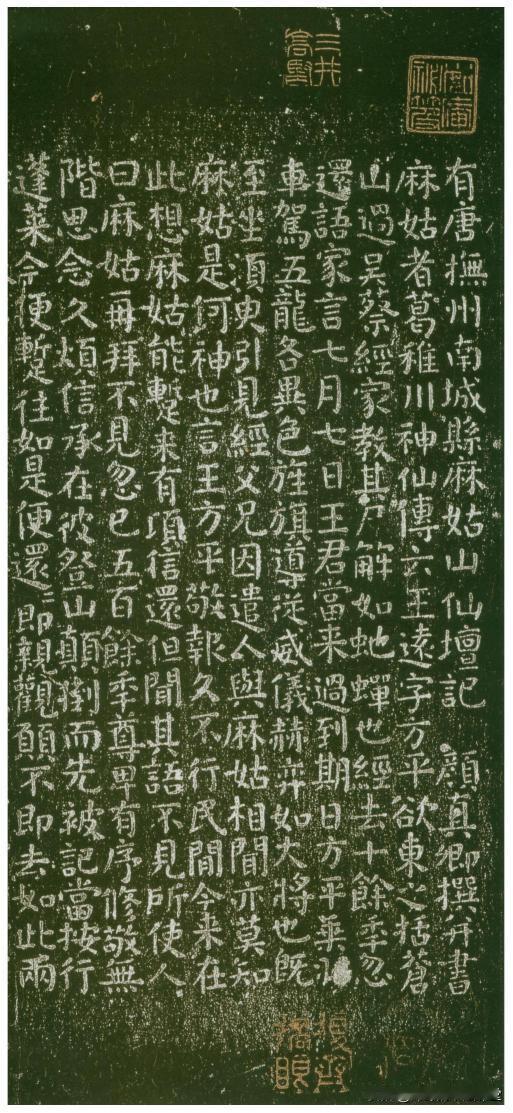 三井高堅
有唐撫州南城縣麻姑山仙壇記 顏真卿撰并書
麻姑者葛稚川神仙傳云王遠字方平欲東之括蒼
山過吳蔡經家教其尸解如虵蟬也經去十餘季忽
還語家言七月七日王君當来過到期日方平乗羽
車駕五龍各異色旌旗導從威儀赫弈如大將也既
至坐須臾引見經父兄因遣人與麻姑相聞亦莫知
麻姑是何神也言王方平敬報久不行民間今来在
此想麻姑能蹔来有頃信還但聞其語不見所使人
曰麻姑再拜不見忽已五百餘季尊卑有序修敬無
階思念久煩信承在彼登山顛倒而先被記當按行
蓬萊今便蹔往如是便還〻即親觀願不即去如此兩